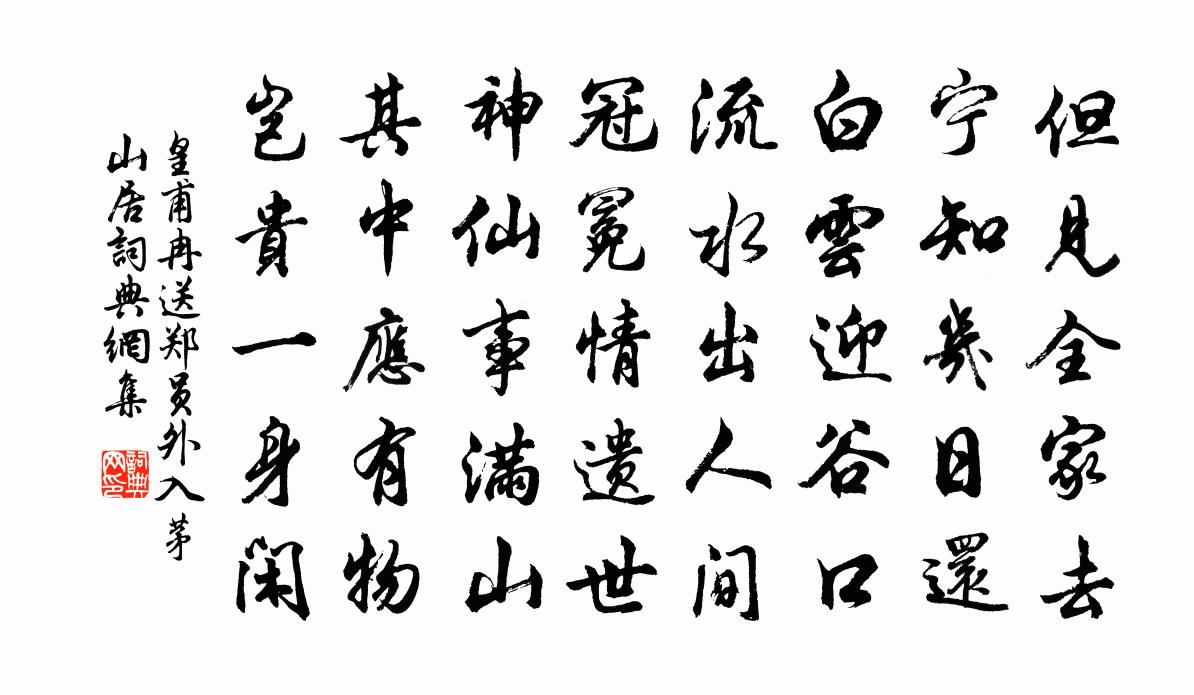 但見全家去
宁知幾日還
白雲迎谷口
流水出人间
冠冕情遗世
神仙事满山
其中應有物
岂貴一身闲
皇甫冉送郑员外入茅
山居詞典網集
詞典
网印